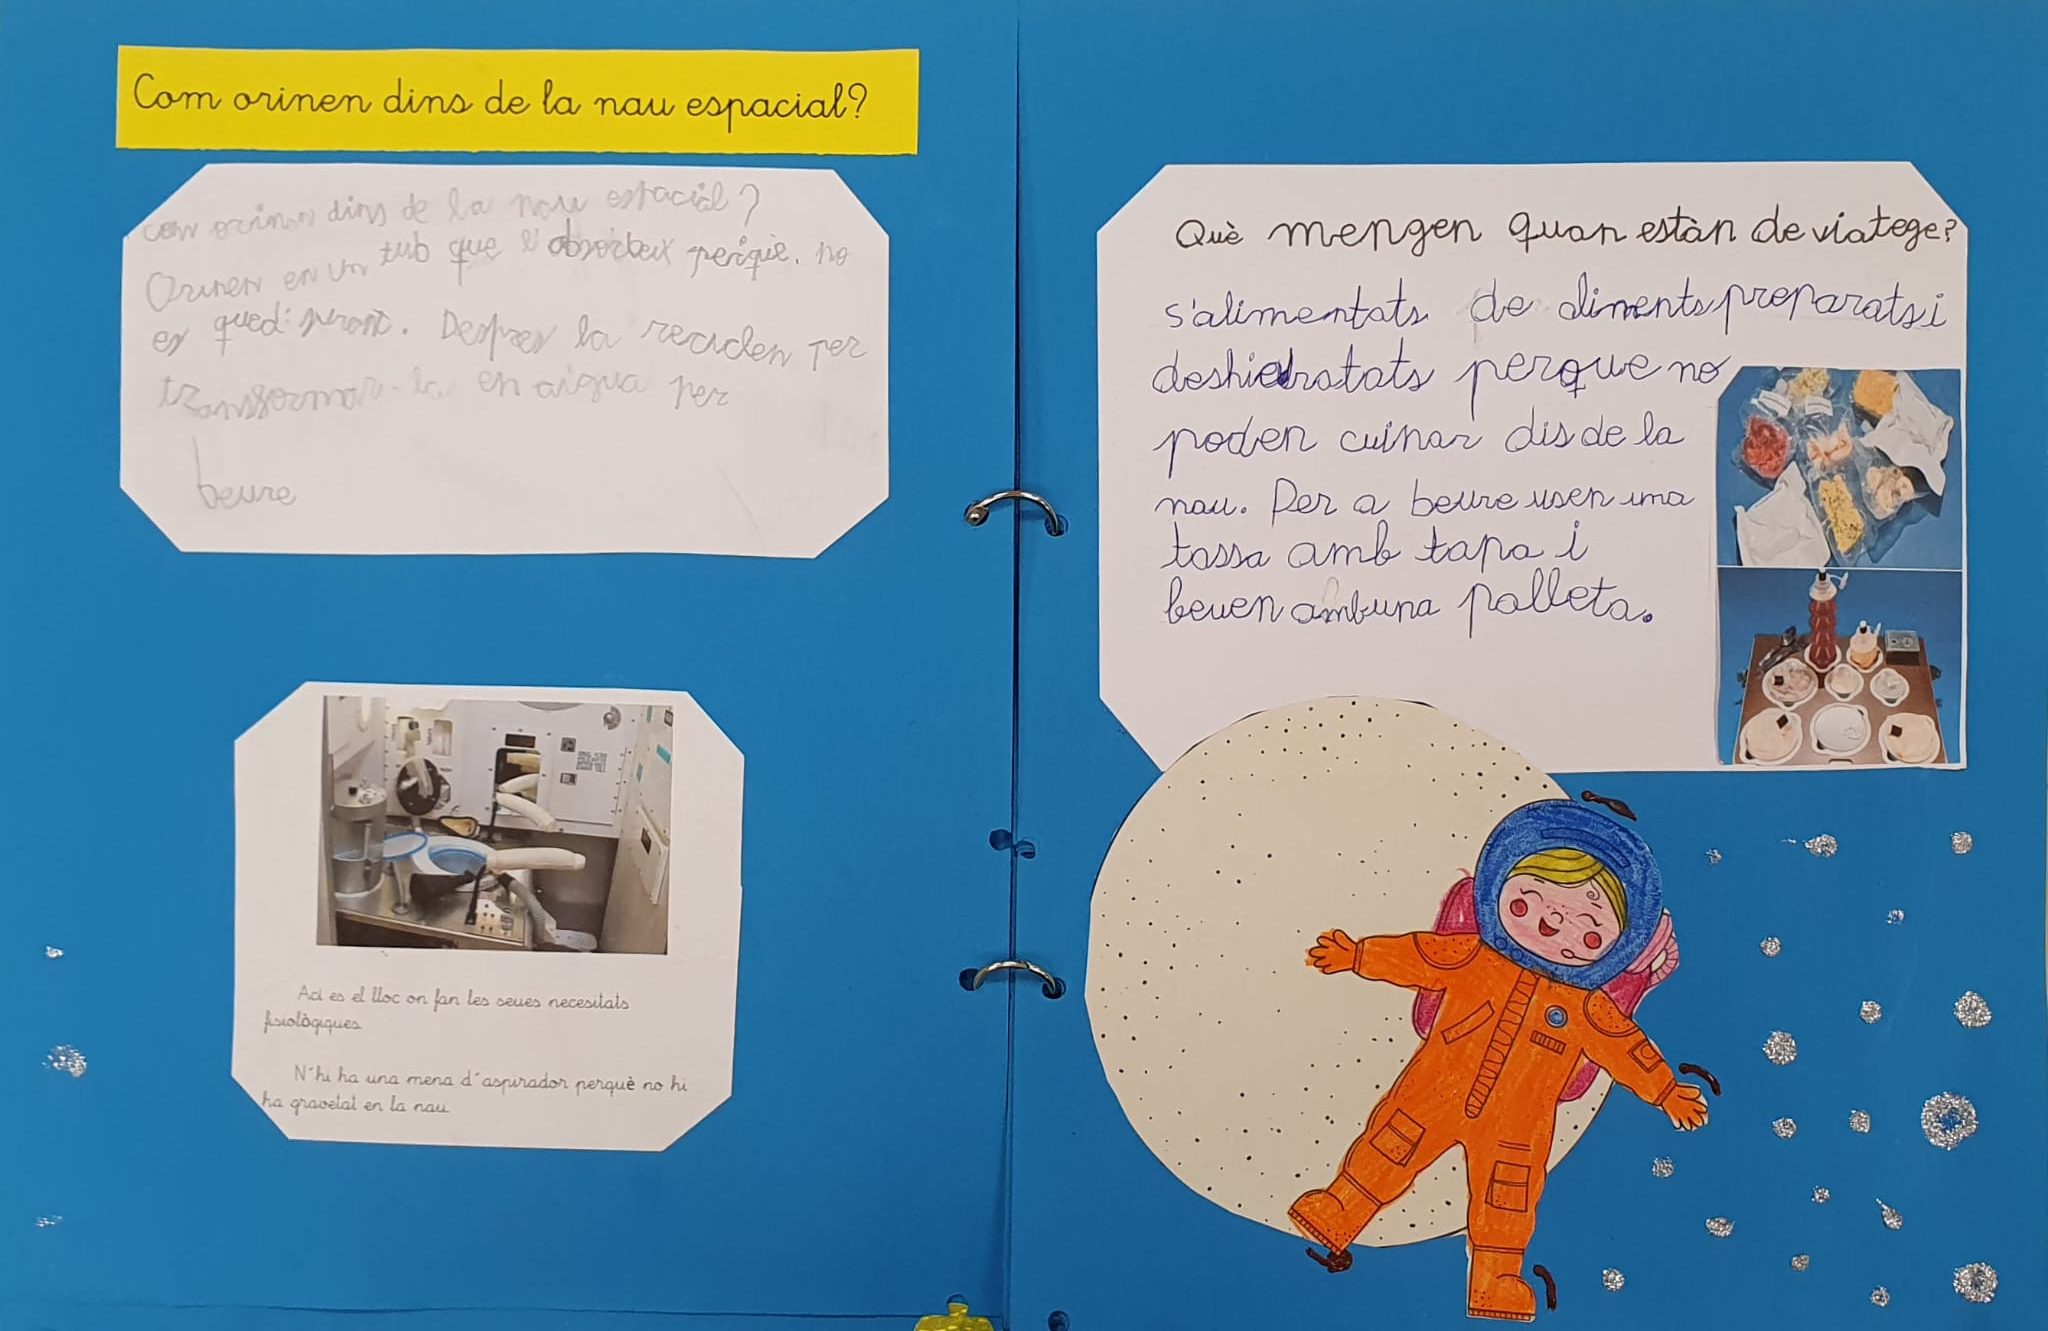 Com orinen dins de la nau espacial?
com orinen dins de la nau espacial?
Orinen en un tub que l'absorbeix perquè. no
es quedi surant. Despres la reciclen per
transformar-la en aigua per
beure
Aci es el lloc on fan les seues necesitats
fisiològiques.
N´hi ha una mena d´aspirador perquè no hi
ha gravetat en la nau.
Què mengen quan estàn de viatege?
s'alimentats de aliments preparats i
deshidratats perque no
poden cuinar dis de la
nau. Per a beure usen una
tassa amb tapa i
beuen amb una palleta.